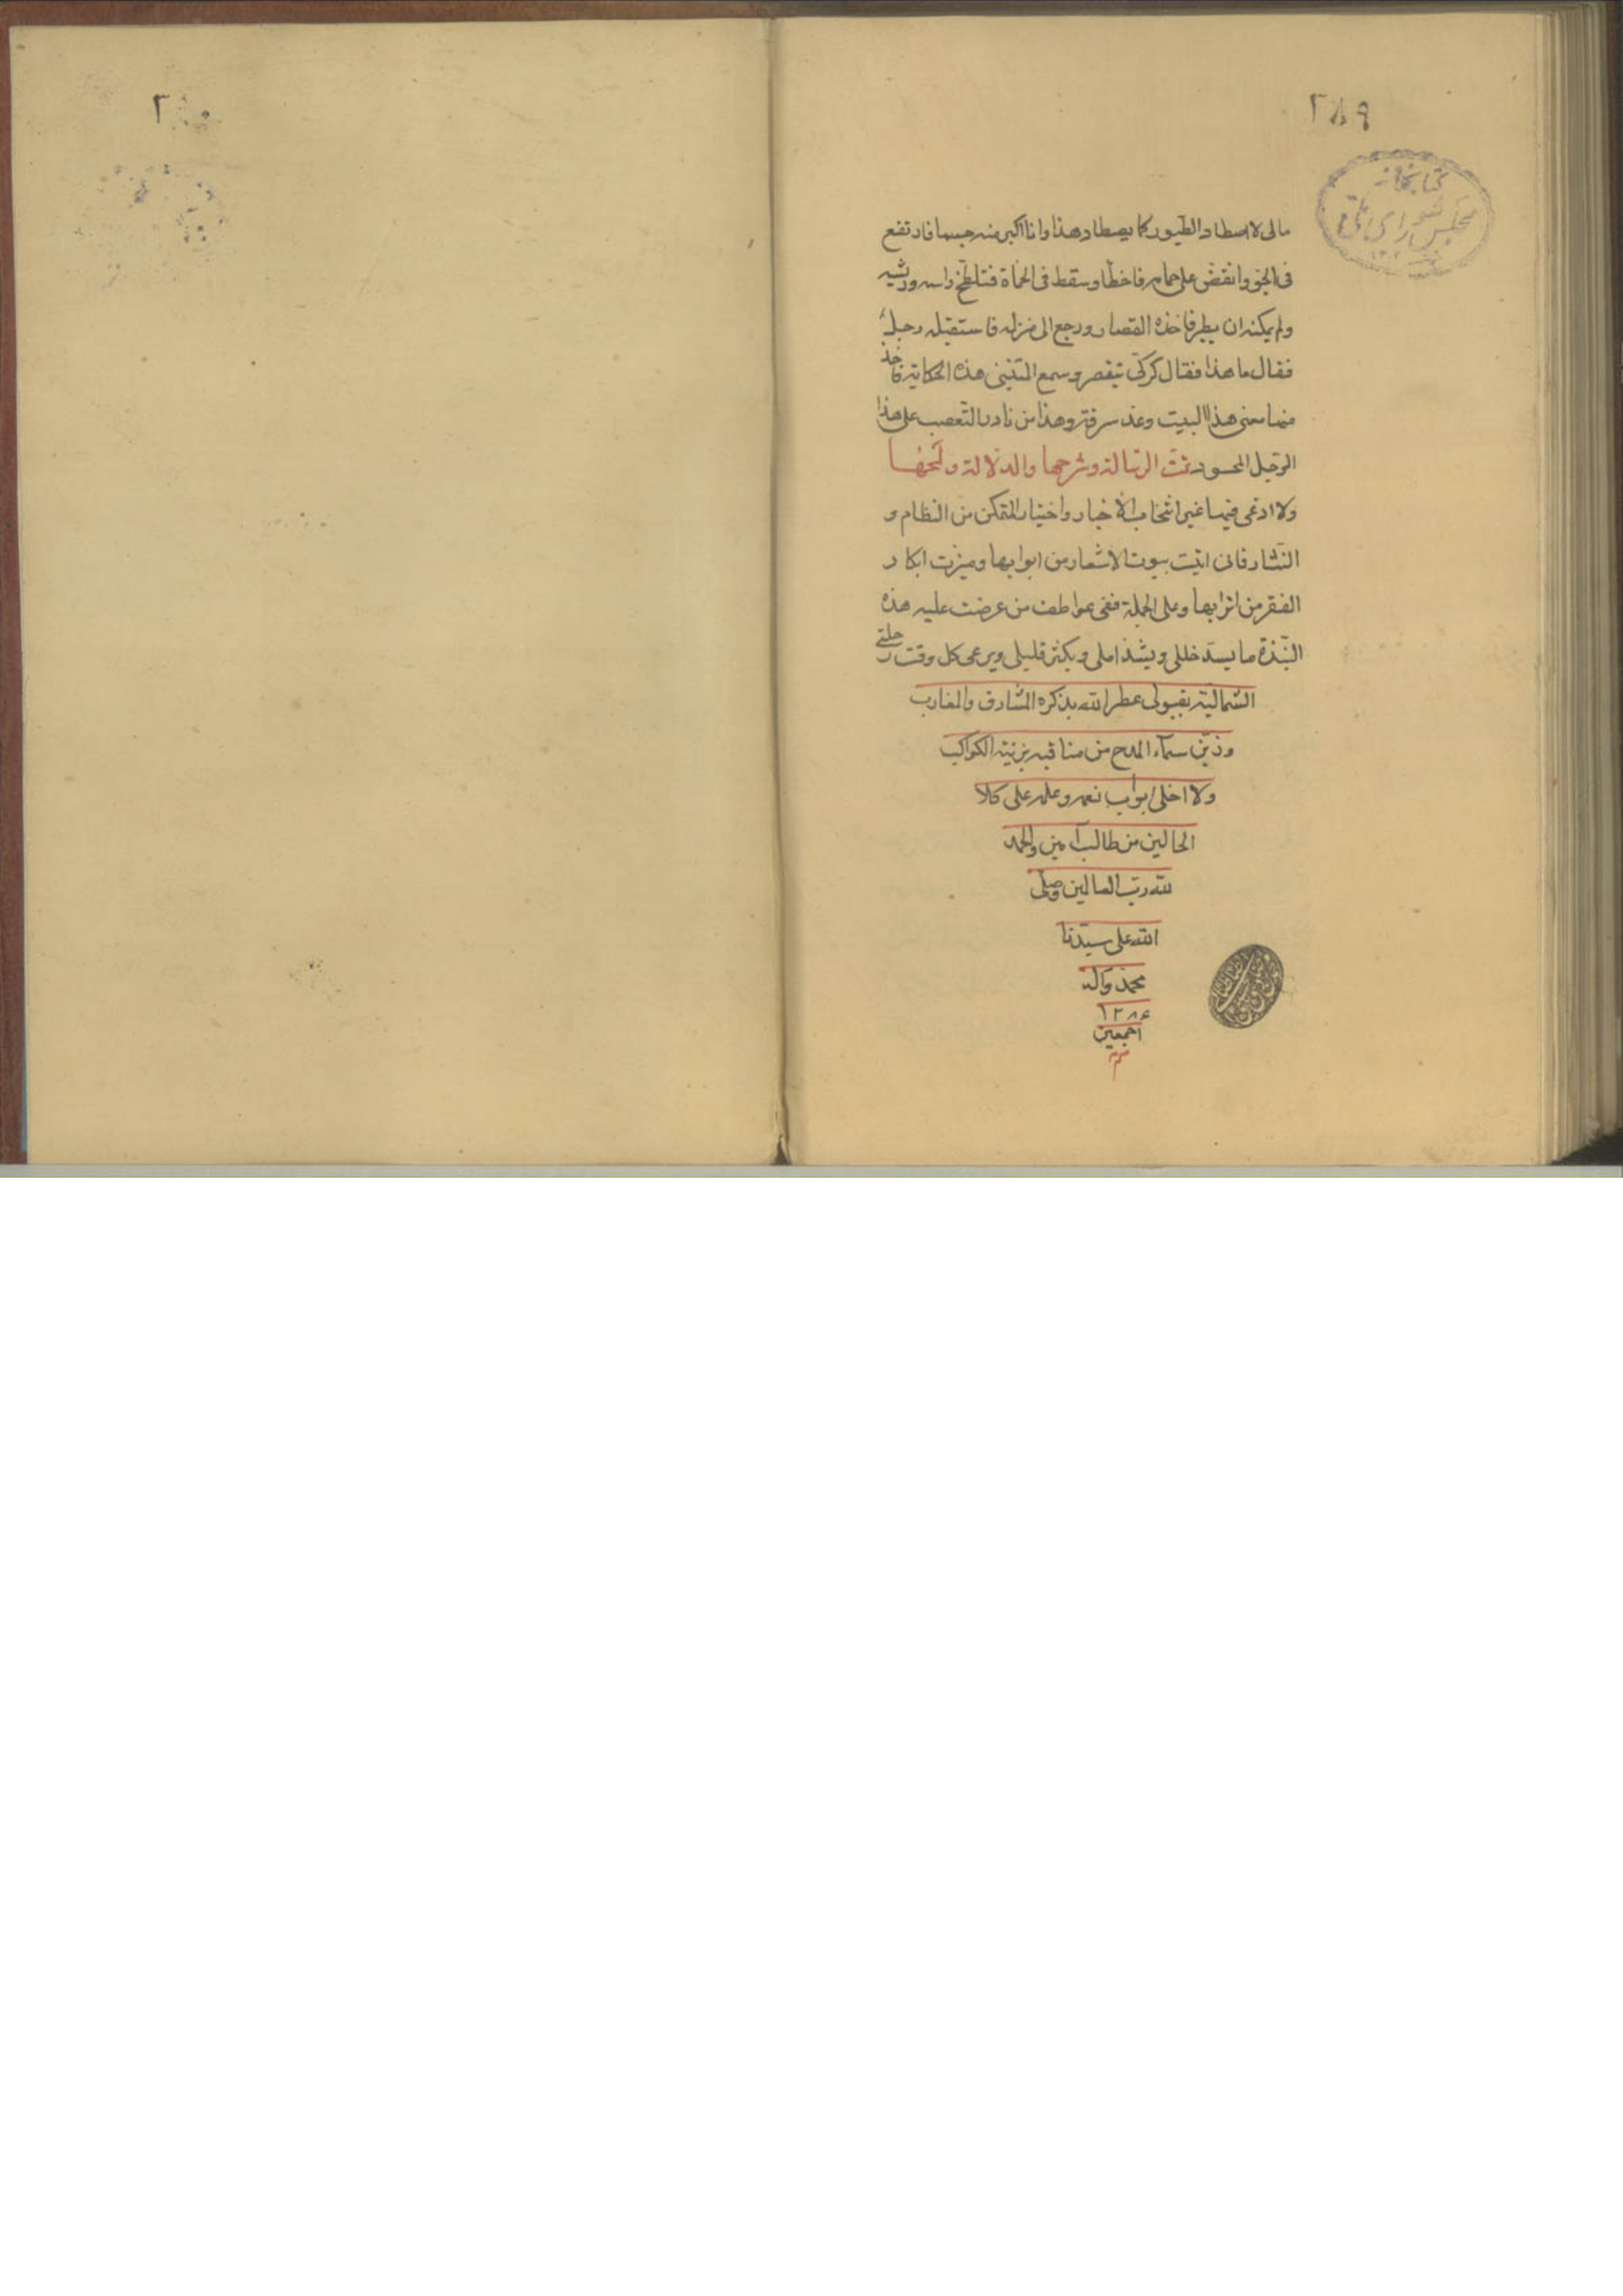 ٢٨٩
كتابخانه
مجلس شورای ملی
مالی لا اصطاد الطیور كما یصطاد هذا وانا اكبر منه جسما فارتفع
فی الجو وانقض علی حمام فاخطأ وسقط فی الحمأة فتلطخ راسه وریشه
ولم یمكنه ان یطیر فاخذه القصار ورجع الی منزله فاستقبله رجل
فقال ما هذا فقال كركی تیقصر وسمع المتنبی هذه الحكایة فاخذ
منها معنی هذا البیت وعد سرقة وهذا من نادر التعصب علی هذا
الرجل المحسود تمت الرسالة وشرحها والدلالة و
ولا ادعی فیها غیر انتخاب الاخبار واختیار المتمكن من النظام و
النثار فانی اتیت بیوت الاشعار من ابوابها ومیزت ابكار
الفقر من اترابها وعلی الجملة ففی عواطف من عرضت علیه هذه
النبذة ما یسد خللی ویشد املی ویكثر قلیلی ویرعی كل وقت رحلتی
الشمالیة بقبولی عطر الله بذكره المشارق والمغارب
وزین سماء المدح من مناقبه بزینة الكواكب
ولا اخلی ابواب نعمه وعلمه علی كلا
الحالین من طالب آمین والحمد
لله رب العالمین وصلی
الله علی سیدنا
محمد وآله
١٢٨٤
اجمعین